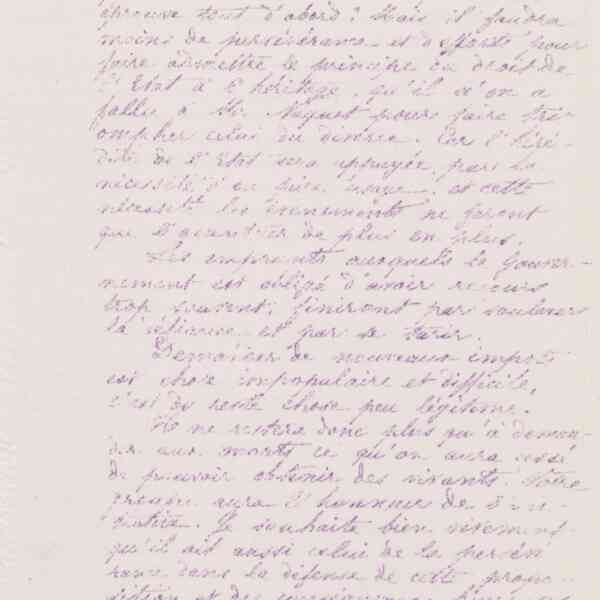 éprouve tout d'abord? Mais il faudra
moins de persévérance et d'efforts pour
faire admettre le principe du droit de
l'Etat à l'héritage, qu'il n'en a
fallu à M. Naquet pour faire tri-
ompher celui du divorce. Car l'héré-
dité de l'Etat sera appuyée par la
nécessité d'en bien user, et cette
nécessité les évènements ne feront
que l'accentuer de plus en plus.
Les emprunts auxquels le gouver-
nement est obligé d'avoir recours
trop souvent, finiront par soulever
la défiance et par se tarir.
Demander de nouveaux impôts
est chose impopulaire et difficile,
c'est du reste chose peu légitime.
Il ne restera donc plus qu'à deman-
der aux morts ce qu'on aura cessé
de pouvoir obtenir des vivants. Votre
aura l'honneur de l'ini-
tiative. Je souhaite bien vivement
qu'il ait aussi celui de la persévé
rance dans la défense de cette propo-
sition et des